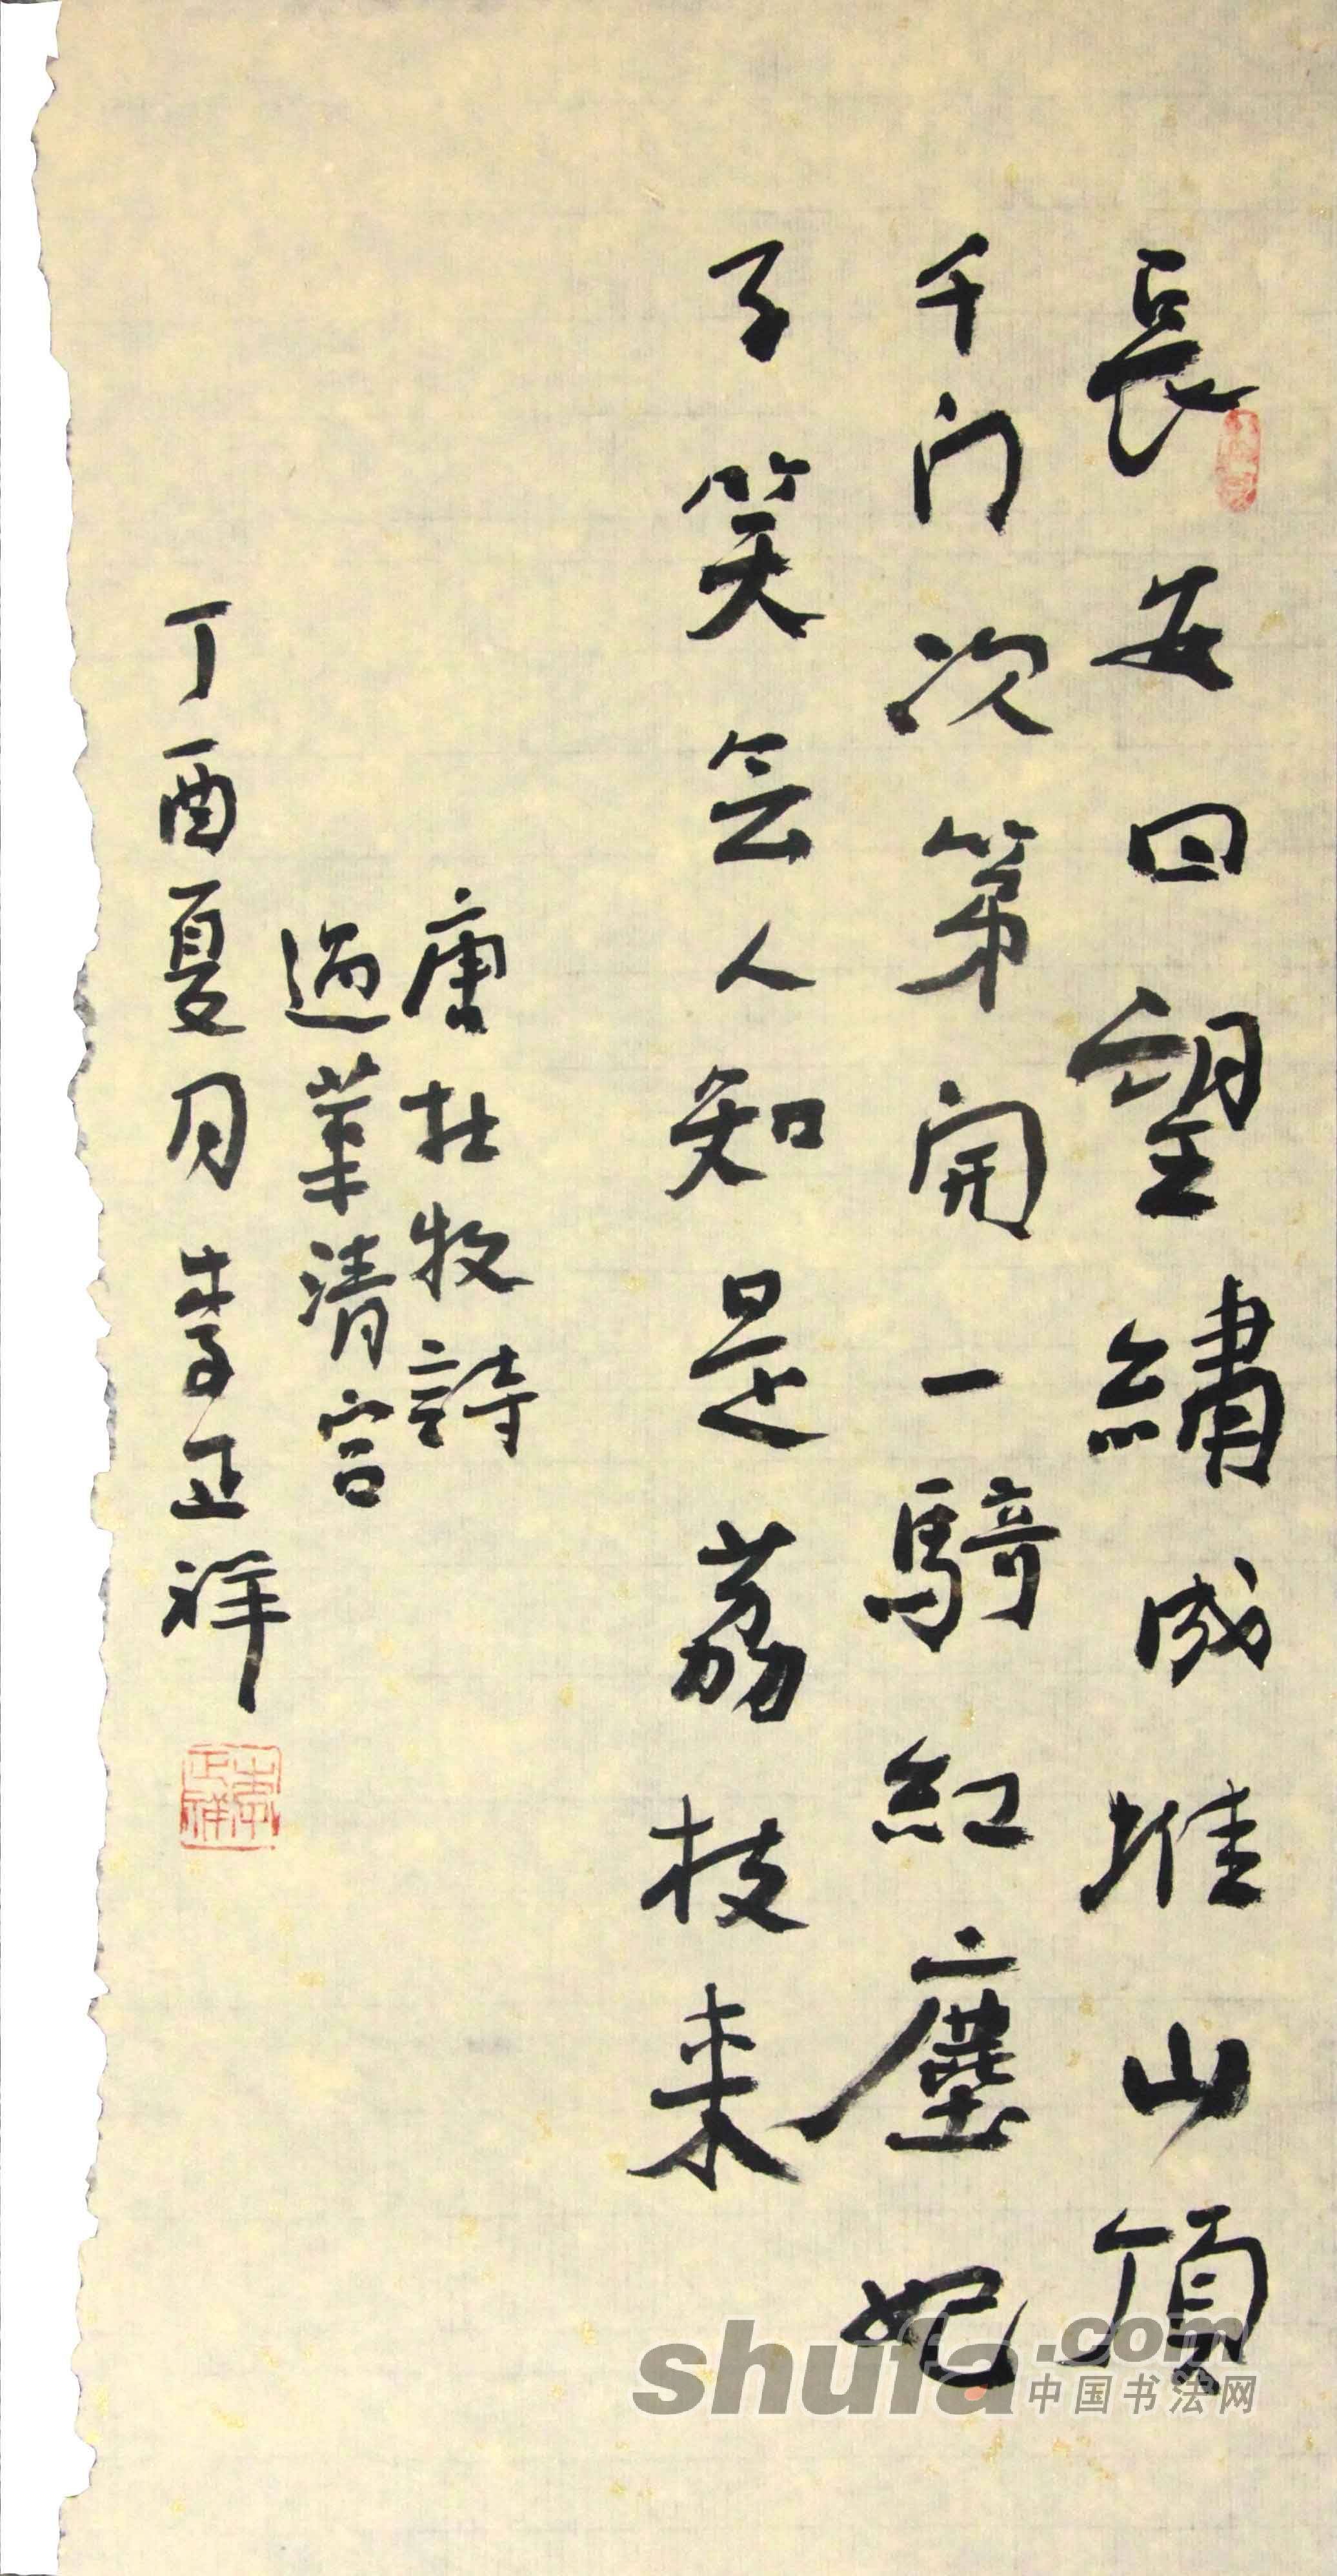 長安回望繡成堆山頂
千门次第開一騎紅塵妃
子笑会人知是荔枝来
唐杜牧詩
過華清宫
丁酉夏月李正祥
shufa.com
中国书法网